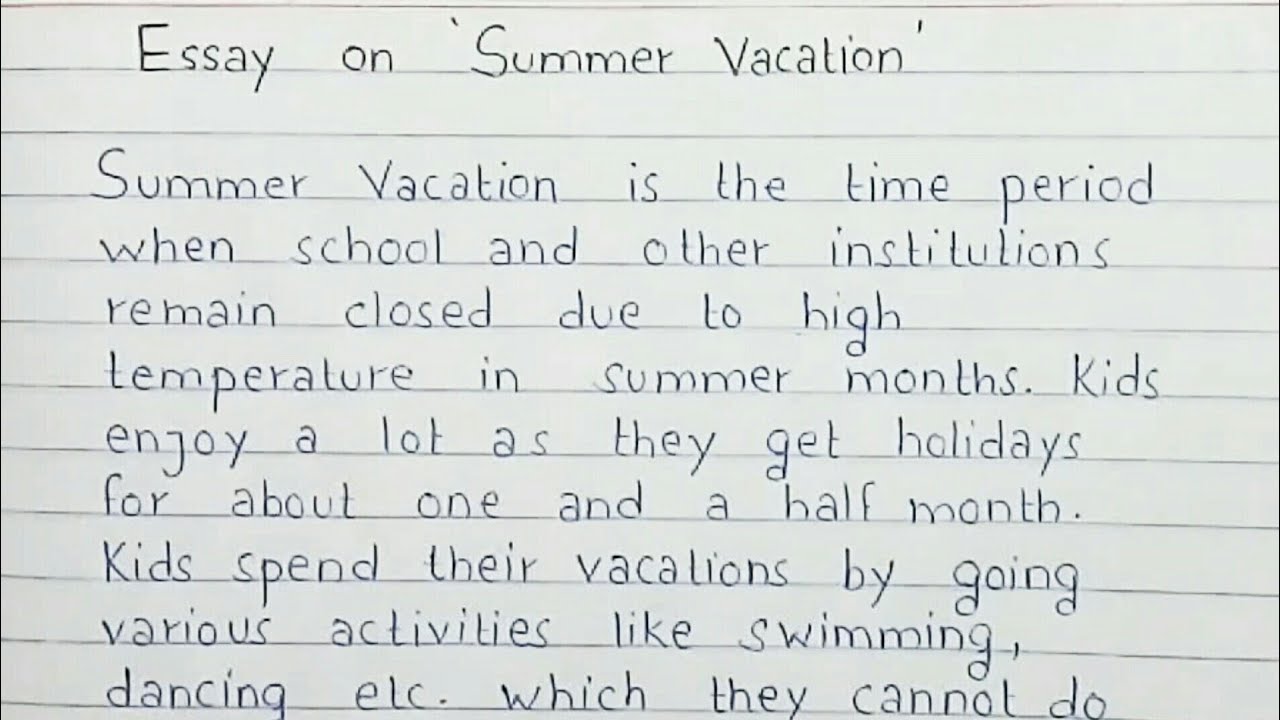 Essay on 'Summer Vacation'
Summer Vacation is the time period
when school and other institutions
remain closed due to high
temperature in summer months. Kids
enjoy a lot as they get holidays
for about one and a half month.
Kids spend their vacations by going
various activities like swimming,
dancing etc. which they cannot do